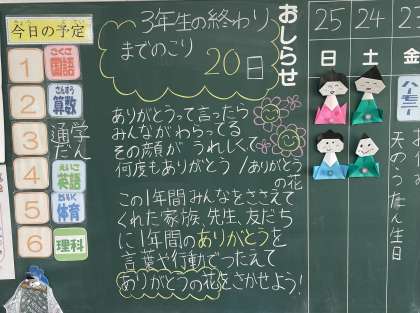 今日の予定
1 こくご 国語
2 さんすう 算数
3 通学だん
4 えいご 英語
5 たいいく 体育
6 理科
3年生の終わり
までのこり
20日
ありがとうって言ったら
みんながわらってる
その顔が うれしくて
何度もありがとう/ありがとう
の花
この1年間みんなをささえて
くれた家族、先生、友だち
に1年間のありがとうを
言葉や行動でつたえて
ありがとうの花をさかせよう!
おしらせ
25
日
24
土
金
天のうたん生日